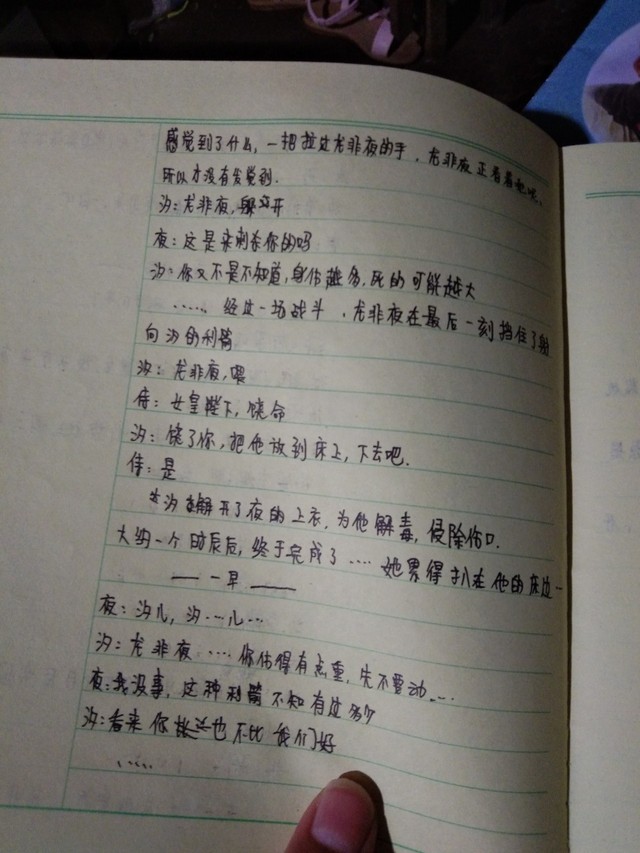 感觉到了什么，一把拉过龙非夜的手，龙非夜正看着她呢、
所以才没有发觉到.
汐：龙非夜，躲开
夜：这是来刺杀你的吗
汐：你又不是不知道，身份越多，死的可能越大
…… 经过一场战斗，龙非夜在最后一刻挡住了射
向汐的利箭
汐：龙非夜，喂
侍：女皇陛下，饶命
汐：饶了你，把他放到床上，下去吧.
侍：是
*汐解开了夜的上衣，为他解毒，侵除伤口.
大约一个时辰后，终于完成了…… 她累得趴在他的床边…
—— 一早 ——
夜：汐儿，汐…儿…
汐：龙非夜…… 你伤得有点重，先不要动……
夜：我没事，这种利箭不知有过多少
汐：看来你也不比我们好
……